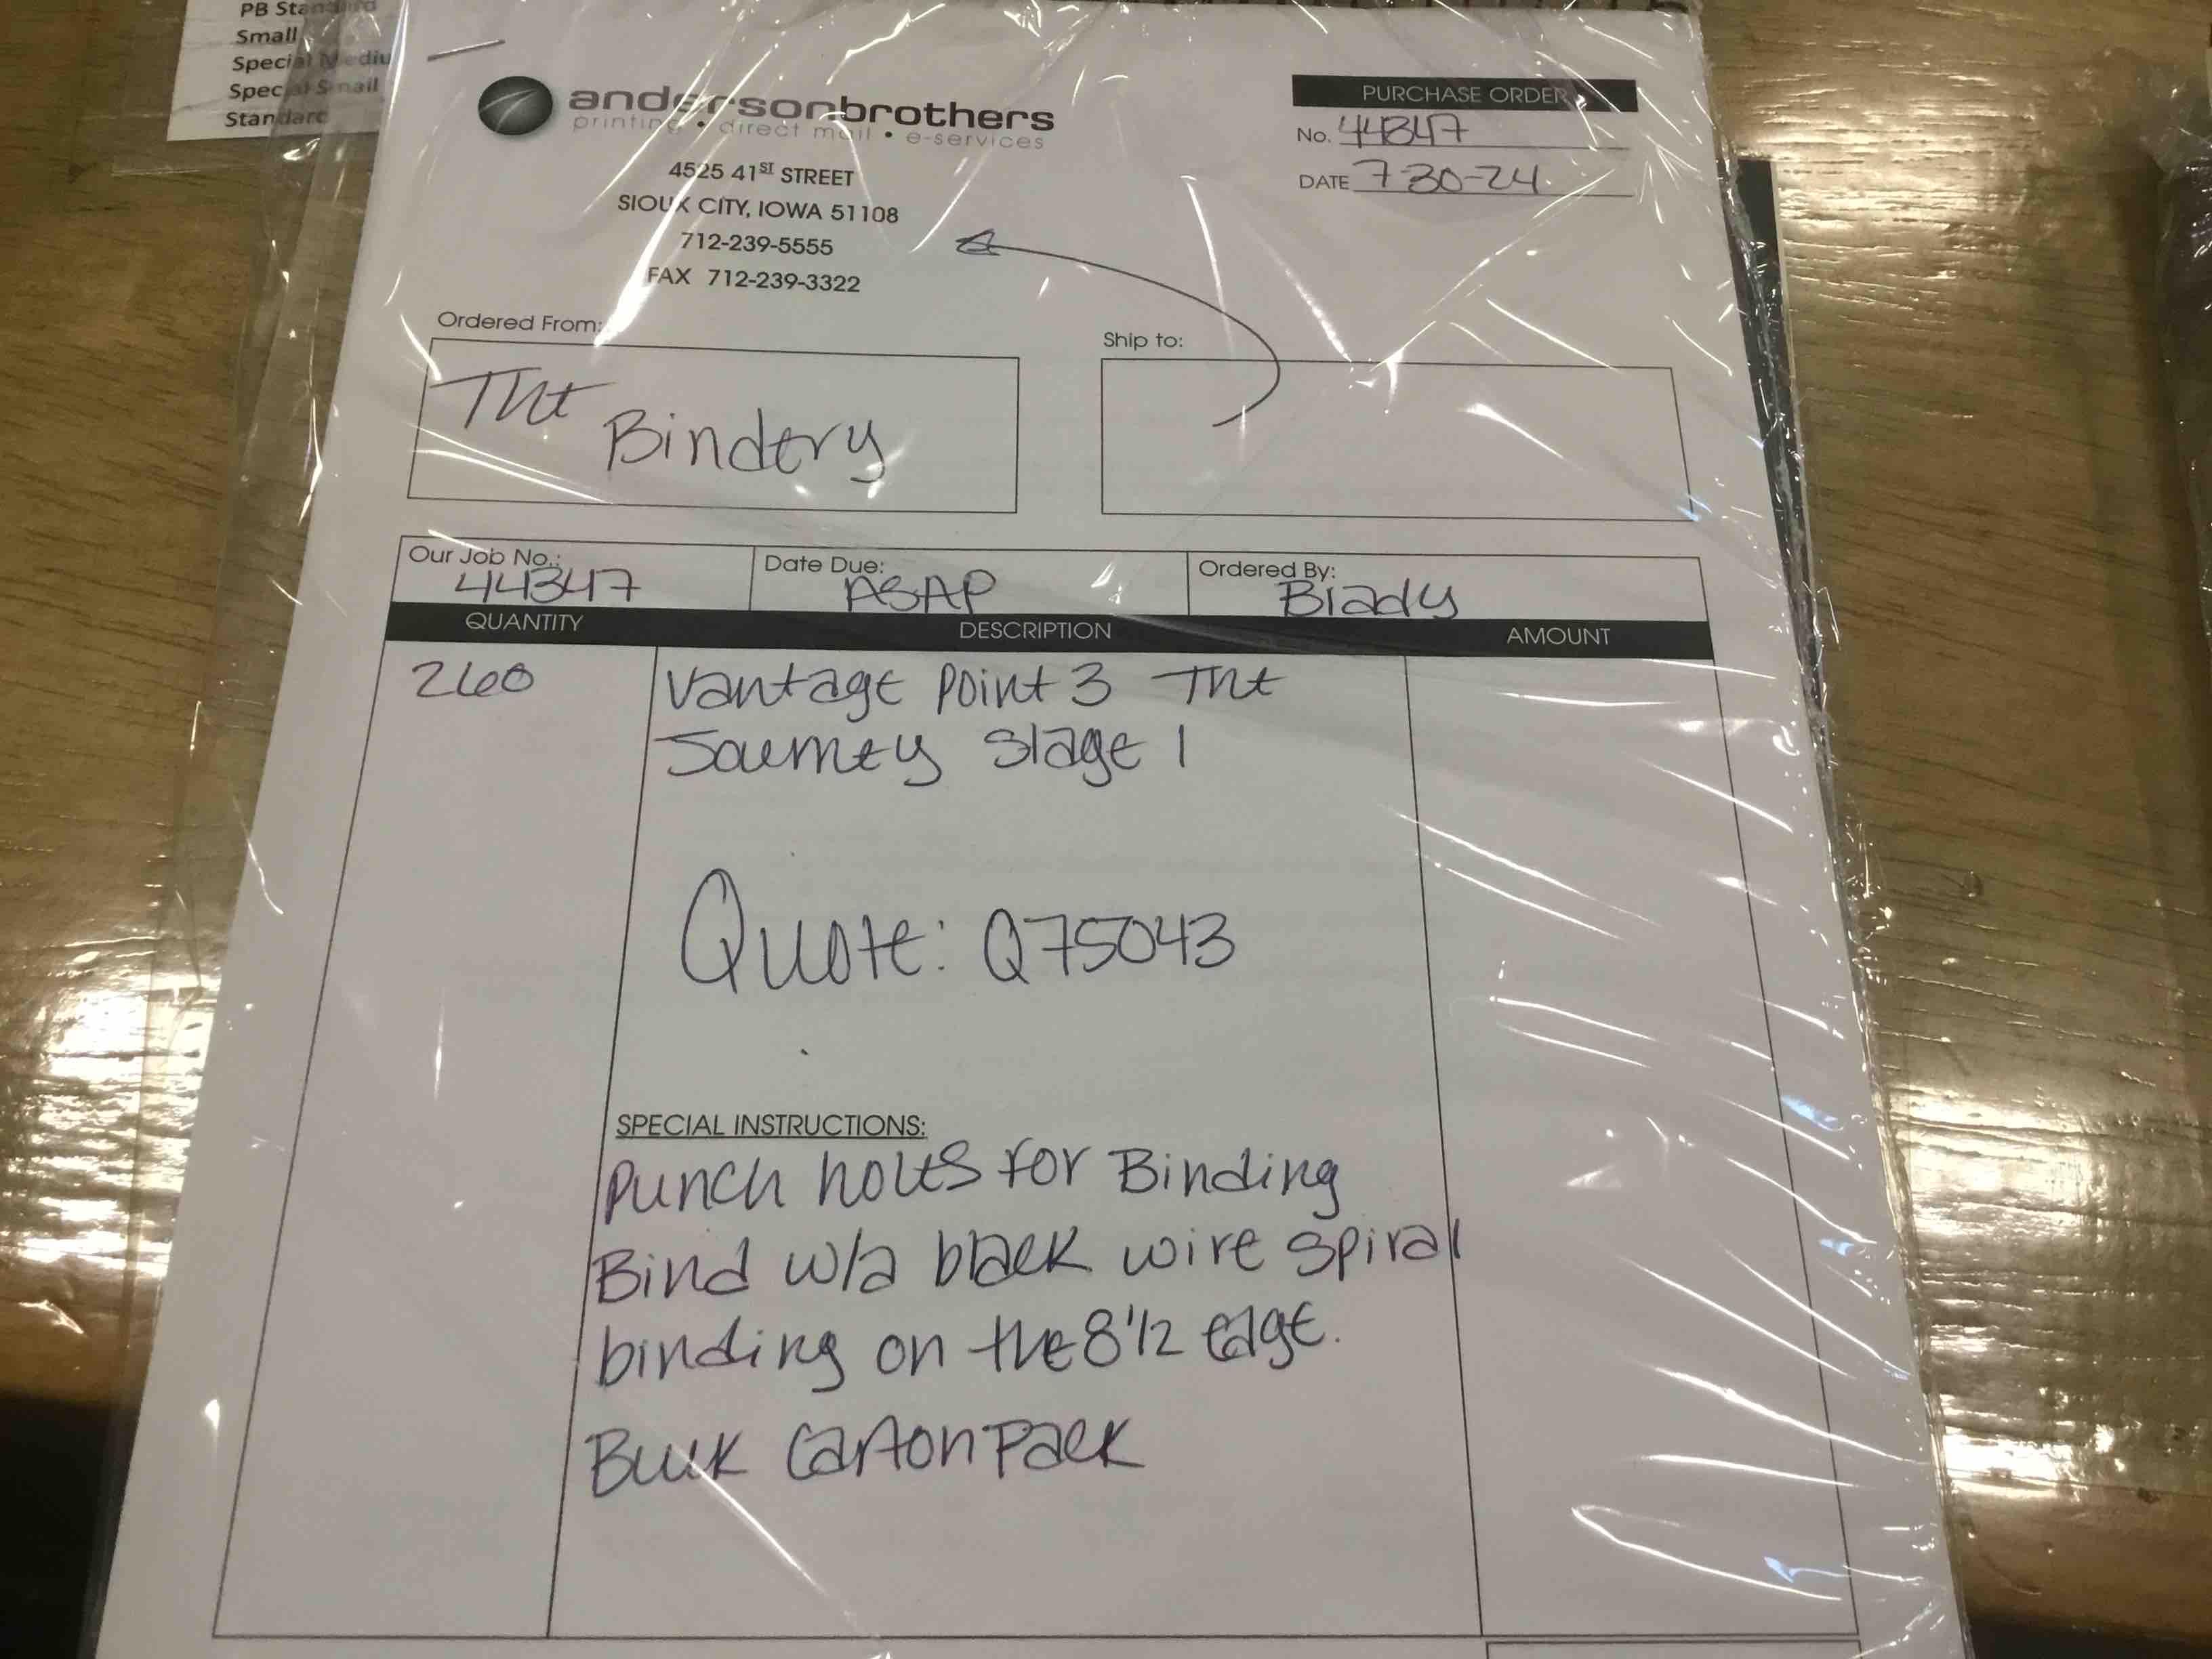 PB Standard
Small
Special Medium
Special Small
Standard
andersonbrothers
printing • direct mail • e-services
4525 41ST STREET
SIOUX CITY, IOWA 51108
712-239-5555
FAX 712-239-3322
PURCHASE ORDER
No. 44347
DATE 7-30-24
Ordered From:
The Bindery
Ship to:
Our Job No.: 44347
Date Due: ASAP
Ordered By: Brady
QUANTITY DESCRIPTION AMOUNT
260 Vantage Point 3 The
Journey Stage 1
Quote: Q75043
SPECIAL INSTRUCTIONS:
Punch holes for Binding
Bind w/a black wire spiral
binding on the 8 1/2 edge.
Bulk Carton Pack